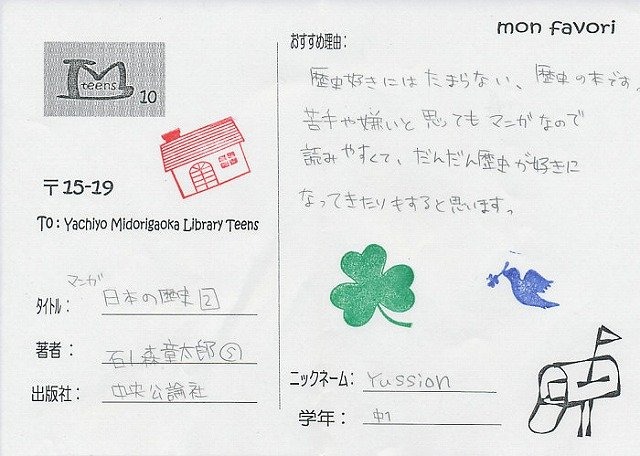 TM
teens
10
〒15-19
To: Yachiyo Midorigaoka Library Teens
マンガ
タイトル: 日本の歴史 2
著者: 石ノ森章太郎 ⑤
出版社: 中央公論社
mon favori
おすすめ理由:
歴史好きにはたまらない、歴史の本です。
苦手や嫌いと思ってもマンガなので
読みやすくて、だんだん歴史が好きに
なってきたりもすると思います。
ニックネーム: Yussion
学年: 中1